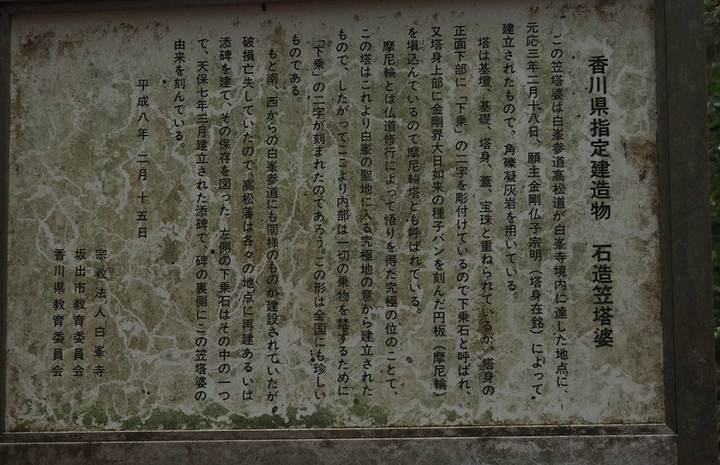 香川県指定建造物　石造笠塔婆
この笠塔婆は白峯参道高松道が白峯寺境内に達した地点に、
元応三年二月十八日、願主金剛仏子宗明（塔身在銘）によって
建立されたもので、角礫凝灰岩を用いている。
塔は基壇、基礎、塔身、蓋、宝珠と重ねられているが、塔身の
正面下部に「下乗」の二字を彫付けているので下乗石と呼ばれ、
又塔身上部に金剛界大日如来の種子バンを刻んだ円板（摩尼輪）
を塡込んでいるので摩尼輪塔とも呼ばれている。
摩尼輪とは仏道修行によって悟りを得た究極の位のことで、
この塔はこれより白峯の聖地に入る究極地の意から建立された
もので、したがってここより内部は一切の乗物を禁ずるために
「下乗」の二字が刻まれたのであろう。この形は全国にも珍しい
ものである。
もと南、西からの白峯参道にも同様のものが建設されていたが
破損亡失していたので、高松藩は各々の地点に再建あるいは
添碑を建て、その保存を図った。左側の下乗石はその中の一つ
で、天保七年三月建立された添碑で、碑の裏側にこの笠塔婆の
由来を刻んでいる。
平成八年　二月　十五日
宗教法人白峯寺
坂出市教育委員会
香川県教育委員会